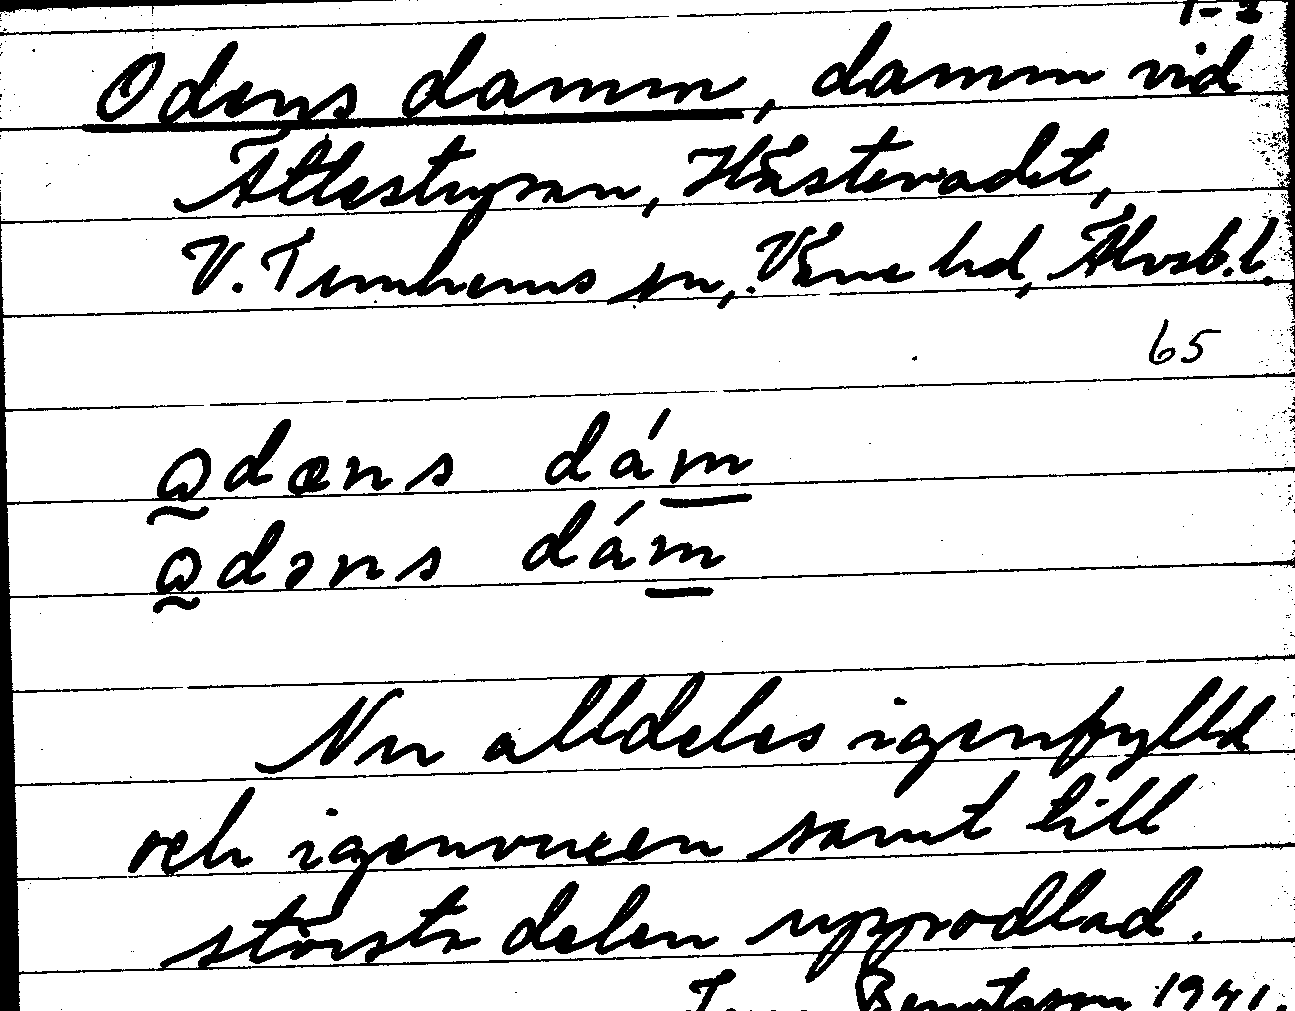 Odens damm, damm vid
Ättestupan, Hästevadet,
V. Tunhems sn, Väne hd, Älvsb.l.
65
o̰dæns dám̲
o̰dəns dám̲
Nu alldeles igenfylld
och igenvuxen samt till
största delen uppodlad.
Bengtsson 1941.